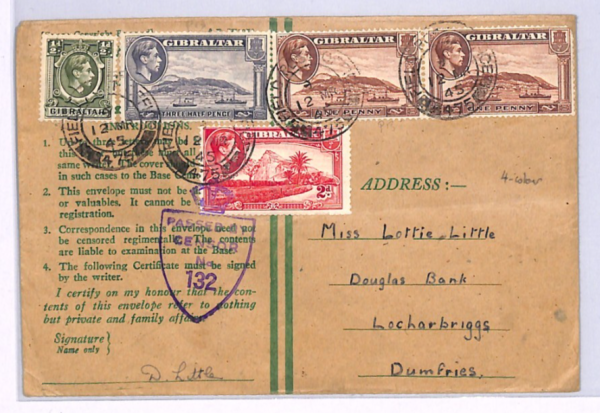 ½d
GIBRALTAR
GIBRALTAR
THREE HALF PENCE
GIBRALTAR
ONE PENNY
GIBRALTAR
ONE PENNY
FIELD
12
45
475
GIBRALTAR
2d
INSTRUCTIONS.
1.
same writer. The cover
in such cases to the Base
2. This envelope must not be
or valuables. It cannot be
registration.
3. Correspondence in this envelope need not
be censored regimentally. The contents
are liable to examination at the Base.
4. The following Certificate must be signed
by the writer.
I certify on my honour that the con-
tents of this envelope refer to nothing
but private and family affairs.
Signature
Name only
D. Little
PASSED
CENSOR
No
132
4-color
ADDRESS:—
Miss Lottie Little
Douglas Bank
Locharbriggs
Dumfries.